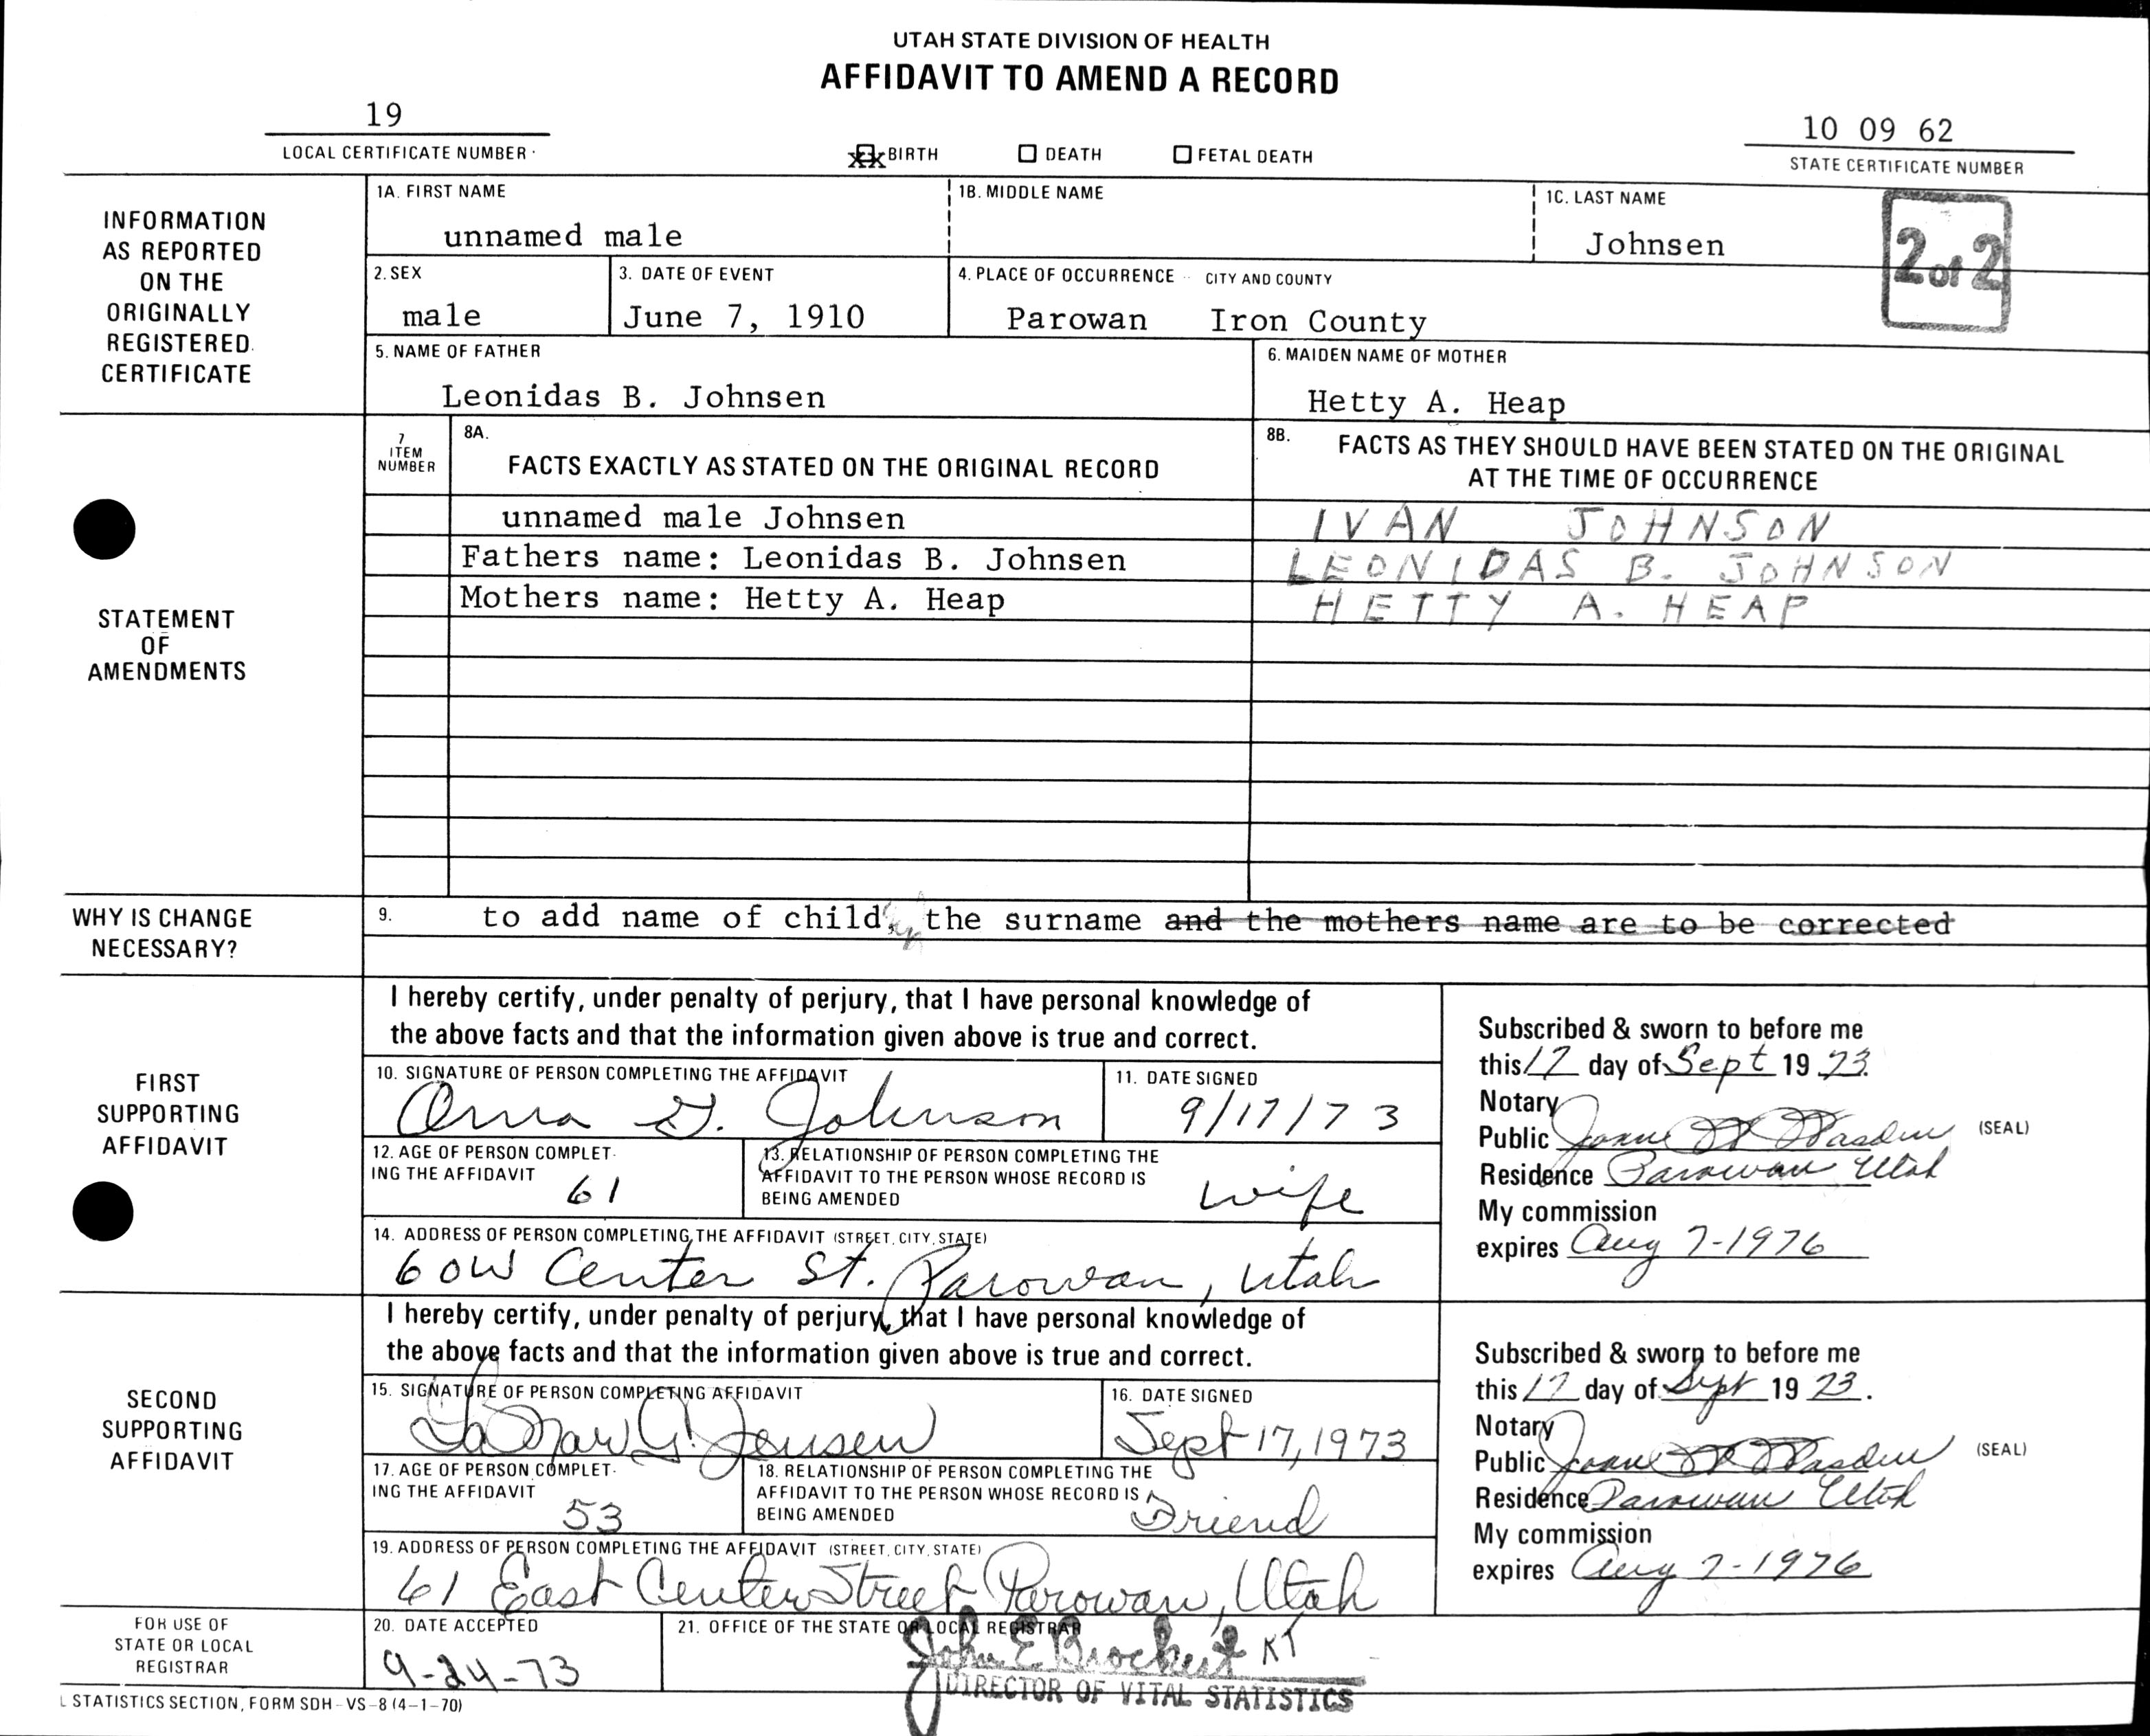 UTAH STATE DIVISION OF HEALTH
AFFIDAVIT TO AMEND A RECORD
19
LOCAL CERTIFICATE NUMBER
xx BIRTH DEATH FETAL DEATH
10 09 62
STATE CERTIFICATE NUMBER
INFORMATION
AS REPORTED
ON THE
ORIGINALLY
REGISTERED
CERTIFICATE
1A. FIRST NAME
unnamed male
1B. MIDDLE NAME
1C. LAST NAME
Johnsen
2 of 2
2. SEX
male
3. DATE OF EVENT
June 7, 1910
4. PLACE OF OCCURRENCE CITY AND COUNTY
Parowan Iron County
5. NAME OF FATHER
Leonidas B. Johnsen
6. MAIDEN NAME OF MOTHER
Hetty A. Heap
STATEMENT
OF
AMENDMENTS
7
ITEM
NUMBER
8A.
FACTS EXACTLY AS STATED ON THE ORIGINAL RECORD
8B. FACTS AS THEY SHOULD HAVE BEEN STATED ON THE ORIGINAL
AT THE TIME OF OCCURRENCE
unnamed male Johnsen
IVAN JOHNSON
Fathers name: Leonidas B. Johnsen
LEONIDAS B. JOHNSON
Mothers name: Hetty A. Heap
HETTY A. HEAP
WHY IS CHANGE
NECESSARY?
9. to add name of child, the surname and the mothers name are to be corrected
FIRST
SUPPORTING
AFFIDAVIT
I hereby certify, under penalty of perjury, that I have personal knowledge of
the above facts and that the information given above is true and correct.
10. SIGNATURE OF PERSON COMPLETING THE AFFIDAVIT
G. Johnson
11. DATE SIGNED
9/17/73
12. AGE OF PERSON COMPLET-
ING THE AFFIDAVIT
61
13. RELATIONSHIP OF PERSON COMPLETING THE
AFFIDAVIT TO THE PERSON WHOSE RECORD IS
BEING AMENDED
wife
14. ADDRESS OF PERSON COMPLETING THE AFFIDAVIT (STREET, CITY, STATE)
60W Center St. Parowan, Utah
Subscribed & sworn to before me
this 17 day of Sept 1973.
Notary
Public Joanne (SEAL)
Residence Parowan Utah
My commission
expires Aug 7-1976
SECOND
SUPPORTING
AFFIDAVIT
I hereby certify, under penalty of perjury, that I have personal knowledge of
the above facts and that the information given above is true and correct.
15. SIGNATURE OF PERSON COMPLETING AFFIDAVIT
LaMar G. Jensen
16. DATE SIGNED
Sept 17, 1973
17. AGE OF PERSON COMPLET-
ING THE AFFIDAVIT
53
18. RELATIONSHIP OF PERSON COMPLETING THE
AFFIDAVIT TO THE PERSON WHOSE RECORD IS
BEING AMENDED
Friend
19. ADDRESS OF PERSON COMPLETING THE AFFIDAVIT (STREET, CITY, STATE)
61 East Center Street Parowan, Utah
Subscribed & sworn to before me
this 17 day of Sept 1973.
Notary
Public Joanne (SEAL)
Residence Parowan Utah
My commission
expires Aug 7-1976
FOR USE OF
STATE OR LOCAL
REGISTRAR
20. DATE ACCEPTED
9-24-73
21. OFFICE OF THE STATE OR LOCAL REGISTRAR
John E Brockert KT
DIRECTOR OF VITAL STATISTICS
L STATISTICS SECTION, FORM SDH-VS-8 (4-1-70)